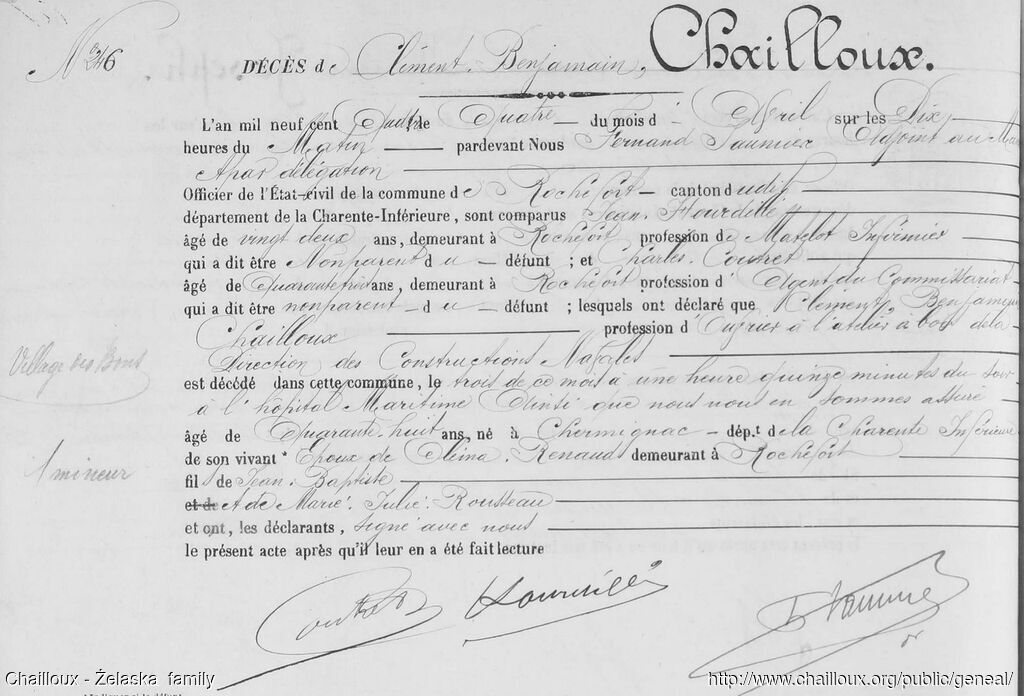 N° 246
DÉCÈS de Clément, Benjamain, Chailloux.
L'an mil neuf cent quatre le Quatre du mois d'Avril sur les Dix
heures du Matin pardevant Nous Fernand Saunier Adjoint au Maire
A par délégation
Officier de l'État-civil de la commune de Rochefort canton dudit
département de la Charente-Inférieure, sont comparus Jean Hourdillé
âgé de vingt deux ans, demeurant à Rochefort profession de Matelot Infirmier
qui a dit être Nonparent du défunt ; et Charles Coutret
âgé de Quarante trois ans, demeurant à Rochefort profession d'Agent du Commissariat
qui a dit être nonparent du défunt ; lesquels ont déclaré que Clément, Benjamin
Chailloux profession d'Ouvrier à l'atelier à bois de la
Direction des Constructions Navales
Village des Bois
est décédé dans cette commune, le trois de ce mois à une heure quinze minutes du soir
à l'hôpital Maritime Ainsi que nous nous en sommes assuré
âgé de Quarante huit ans, né à Chermignac dép.t de la Charente Inférieure
1 mineur
de son vivant Epoux de Eléma Renaud demeurant à Rochefort
fil de Jean Baptiste
et de A de Marie Julie Rousseau
et ont, les déclarants, signé avec nous
le présent acte après qu'il leur en a été fait lecture
Coutret Hourdillé
Chailloux - Żelaska family
http://www.chailloux.org/public/geneal/